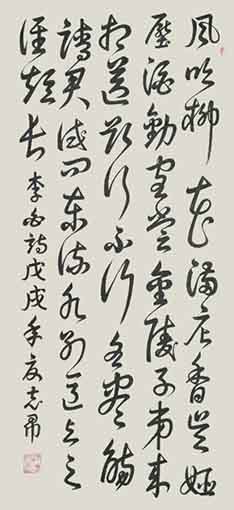 風吹柳花滿店香吳姬
壓酒勸客嘗金陵子弟來
相送欲行不行各盡觴
請君試問東流水別意與之
誰短長 李白詩戊戌年夏志